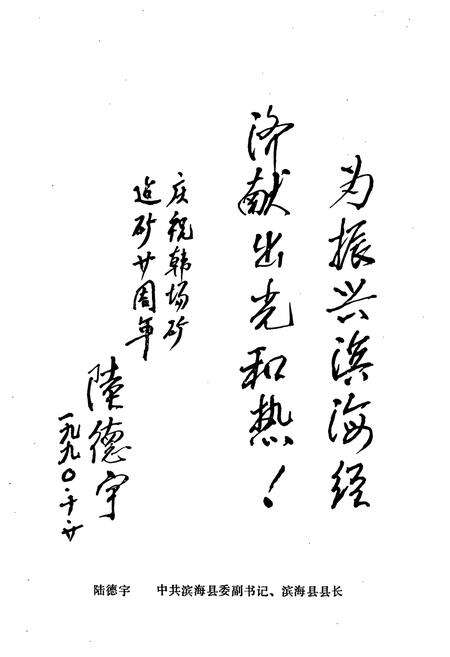 为振兴滨海经
济献出光和热！
庆祝韩场矿
造矿廿周年
陆德宇
一九九〇.十.廿
陆德宇 中共滨海县委副书记、滨海县县长